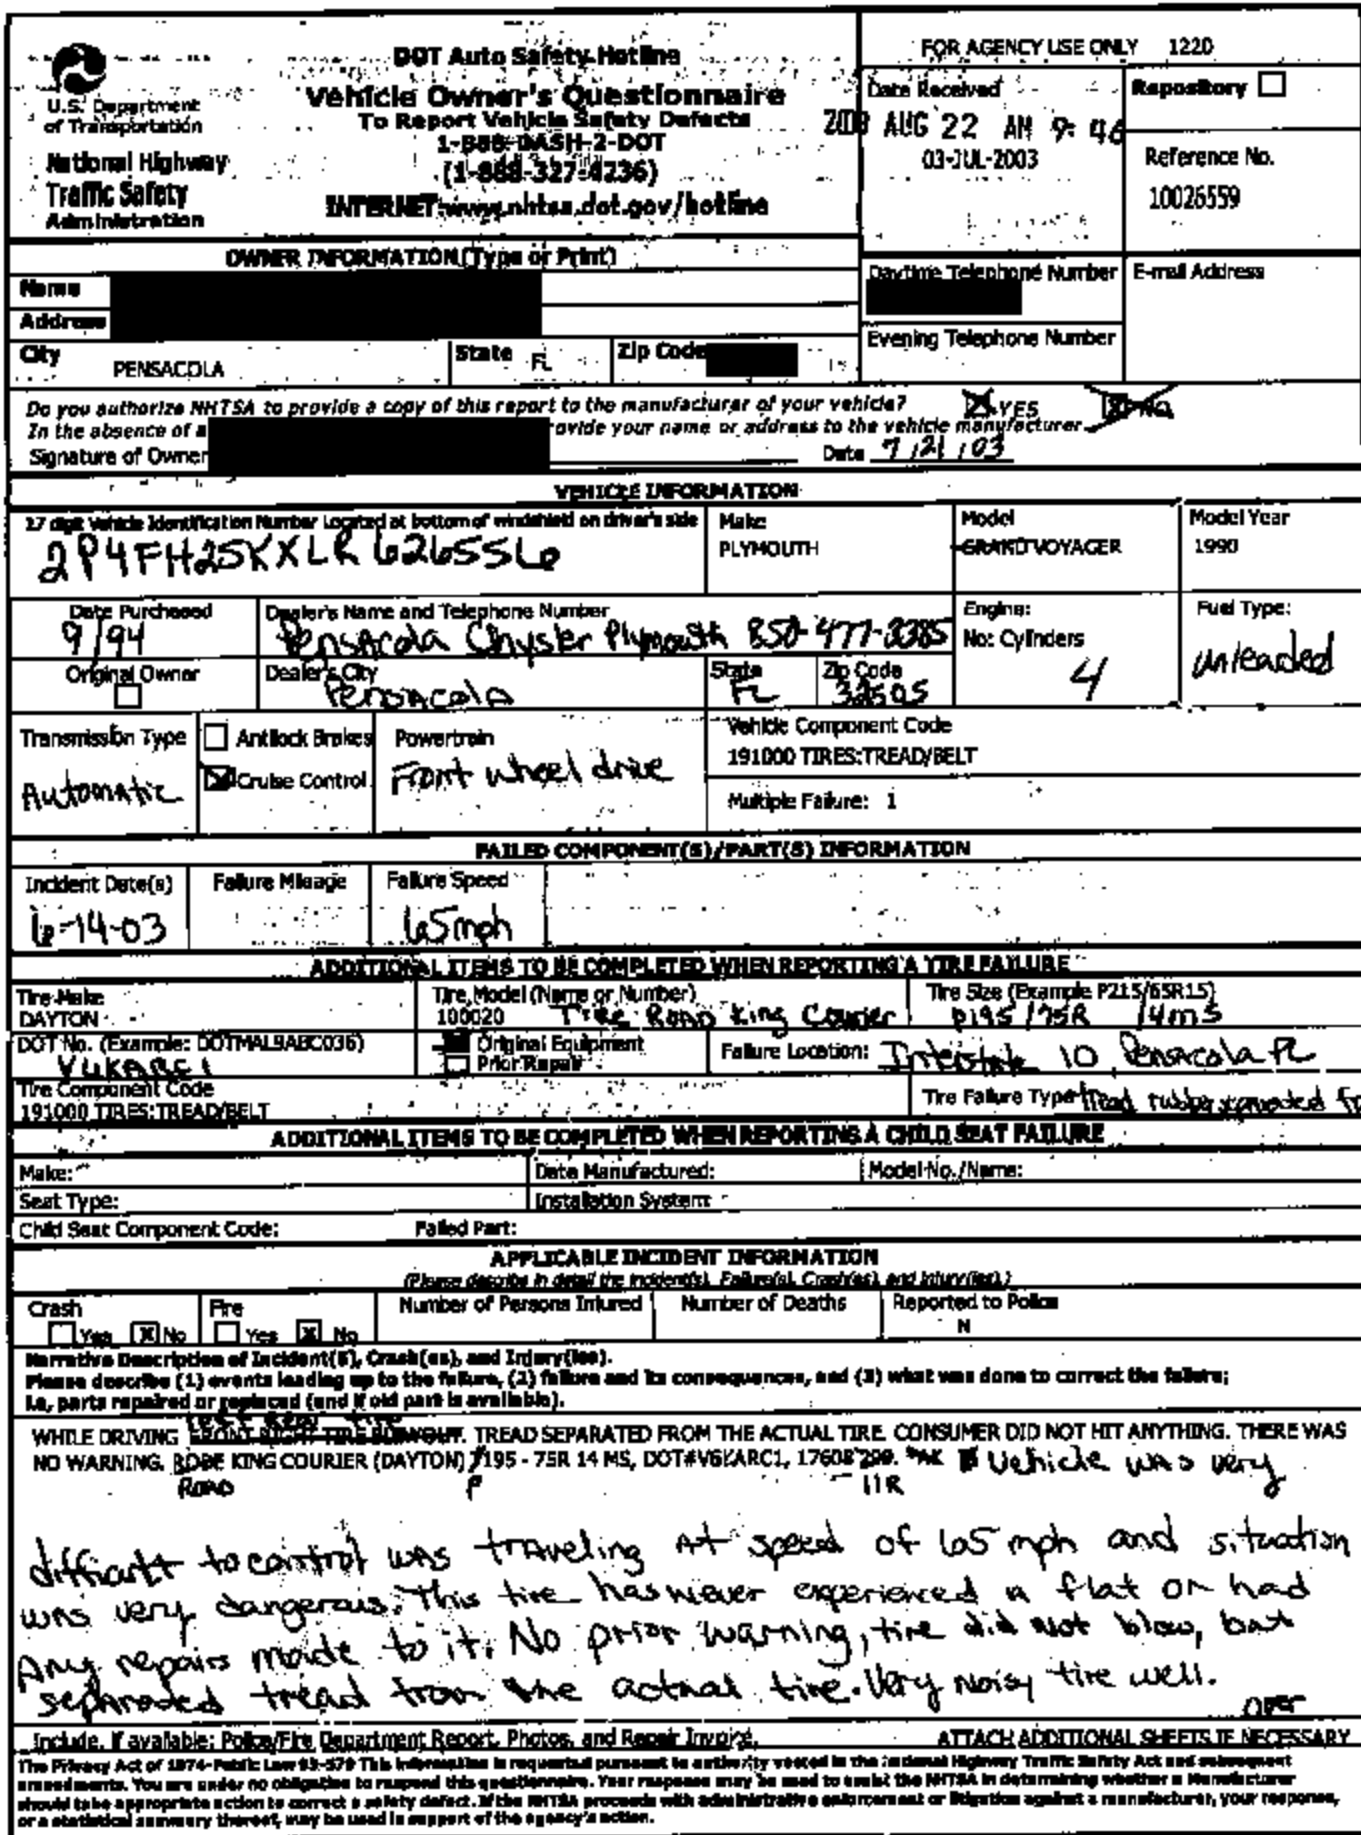 FOR AGENCY USE ONLY 1220
DOT Auto Safety Hotline
Vehicle Owner's Questionnaire
To Report Vehicle Safety Defects
1-888-DASH-2-DOT
(1-888-327-4236)
INTERNET:www.nhtsa.dot.gov/hotline
U.S. Department
of Transportation
National Highway
Traffic Safety
Administration
Date Received
AUG 22 AM 9:46
03-JUL-2003
Repository
Reference No.
10026559
OWNER INFORMATION (Type or Print)
Name
Address
City PENSACOLA State FL Zip Code
Daytime Telephone Number
E-mail Address
Evening Telephone Number
Do you authorize NHTSA to provide a copy of this report to the manufacturer of your vehicle? YES NO
In the absence of a ovide your name or address to the vehicle manufacturer.
Signature of Owner Date 7/21/03
VEHICLE INFORMATION
17 digit Vehicle Identification Number Located at bottom of windshield on driver's side
2P4FH25KXLR626556
Make
PLYMOUTH
Model
GRAND VOYAGER
Model Year
1990
Date Purchased
9/94
Dealer's Name and Telephone Number
Pensacola Chysler Plymouth 850-477-
Engine:
No: Cylinders
4
Fuel Type:
unleaded
Original Owner
Dealer's City
Pensacola
State
FL
Zip Code
32505
Transmission Type
Automatic
Antilock Brakes
Cruise Control
Powertrain
Front wheel drive
Vehicle Component Code
191000 TIRES:TREAD/BELT
Multiple Failure: 1
FAILED COMPONENT(S)/PART(S) INFORMATION
Incident Date(s)
6-14-03
Failure Mileage
Failure Speed
65mph
ADDITIONAL ITEMS TO BE COMPLETED WHEN REPORTING A TIRE FAILURE
Tire Make
DAYTON
Tire Model (Name or Number)
100020 Road King Courier
Tire Size (Example P215/65R15)
P195/75R 14ms
DOT No. (Example: DOTMAL9ABC036)
Original Equipment
Prior Repair
Failure Location: Interstate 10 Pensacola FL
Tire Component Code
191000 TIRES:TREAD/BELT
Tire Failure Type: Tread rubber separated
ADDITIONAL ITEMS TO BE COMPLETED WHEN REPORTING A CHILD SEAT FAILURE
Make: Date Manufactured: Model No./Name:
Seat Type: Installation System:
Child Seat Component Code: Failed Part:
APPLICABLE INCIDENT INFORMATION
(Please describe in detail the incident(s), Failure(s), Crash(es), and injury(ies).)
Crash
Yes X No
Fire
Yes X No
Number of Persons Injured
Number of Deaths
Reported to Police
N
Narrative Description of Incident(s), Crash(es), and Injury(ies).
Please describe (1) events leading up to the failure, (2) failure and its consequences, and (3) what was done to correct the failure;
i.e, parts repaired or replaced (and if old part is available).
left rear tire
WHILE DRIVING FRONT RIGHT TIRE BLEWOUT. TREAD SEPARATED FROM THE ACTUAL TIRE. CONSUMER DID NOT HIT ANYTHING. THERE WAS
NO WARNING. ROBE KING COURIER (DAYTON) 195 - 75R 14 MS, DOT#V6KARC1, 17608 *AK Vehicle was very
ROAD P 11R
difficult to control was traveling at speed of 65 mph and situation
was very dangerous. This tire has never experienced a flat or had
Any repairs made to it. No prior warning, tire did not blow, but
separated tread from the actual tire. Very noisy tire well.
over
Include, if available: Police/Fire Department Report, Photos, and Repair Invoice. ATTACH ADDITIONAL SHEETS IF NECESSARY
The Privacy Act of 1974-Public Law 93-579 This information is requested pursuant to authority vested in the national Highway Traffic Safety Act and subsequent
amendments. You are under no obligation to respond this questionnaire. Your response may be used to assist the NHTSA in determining whether a Manufacturer
should take appropriate action to correct a safety defect. If the NHTSA proceeds with administrative enforcement or litigation against a manufacturer, your response,
or a statistical summary thereof, may be used in support of the agency's action.